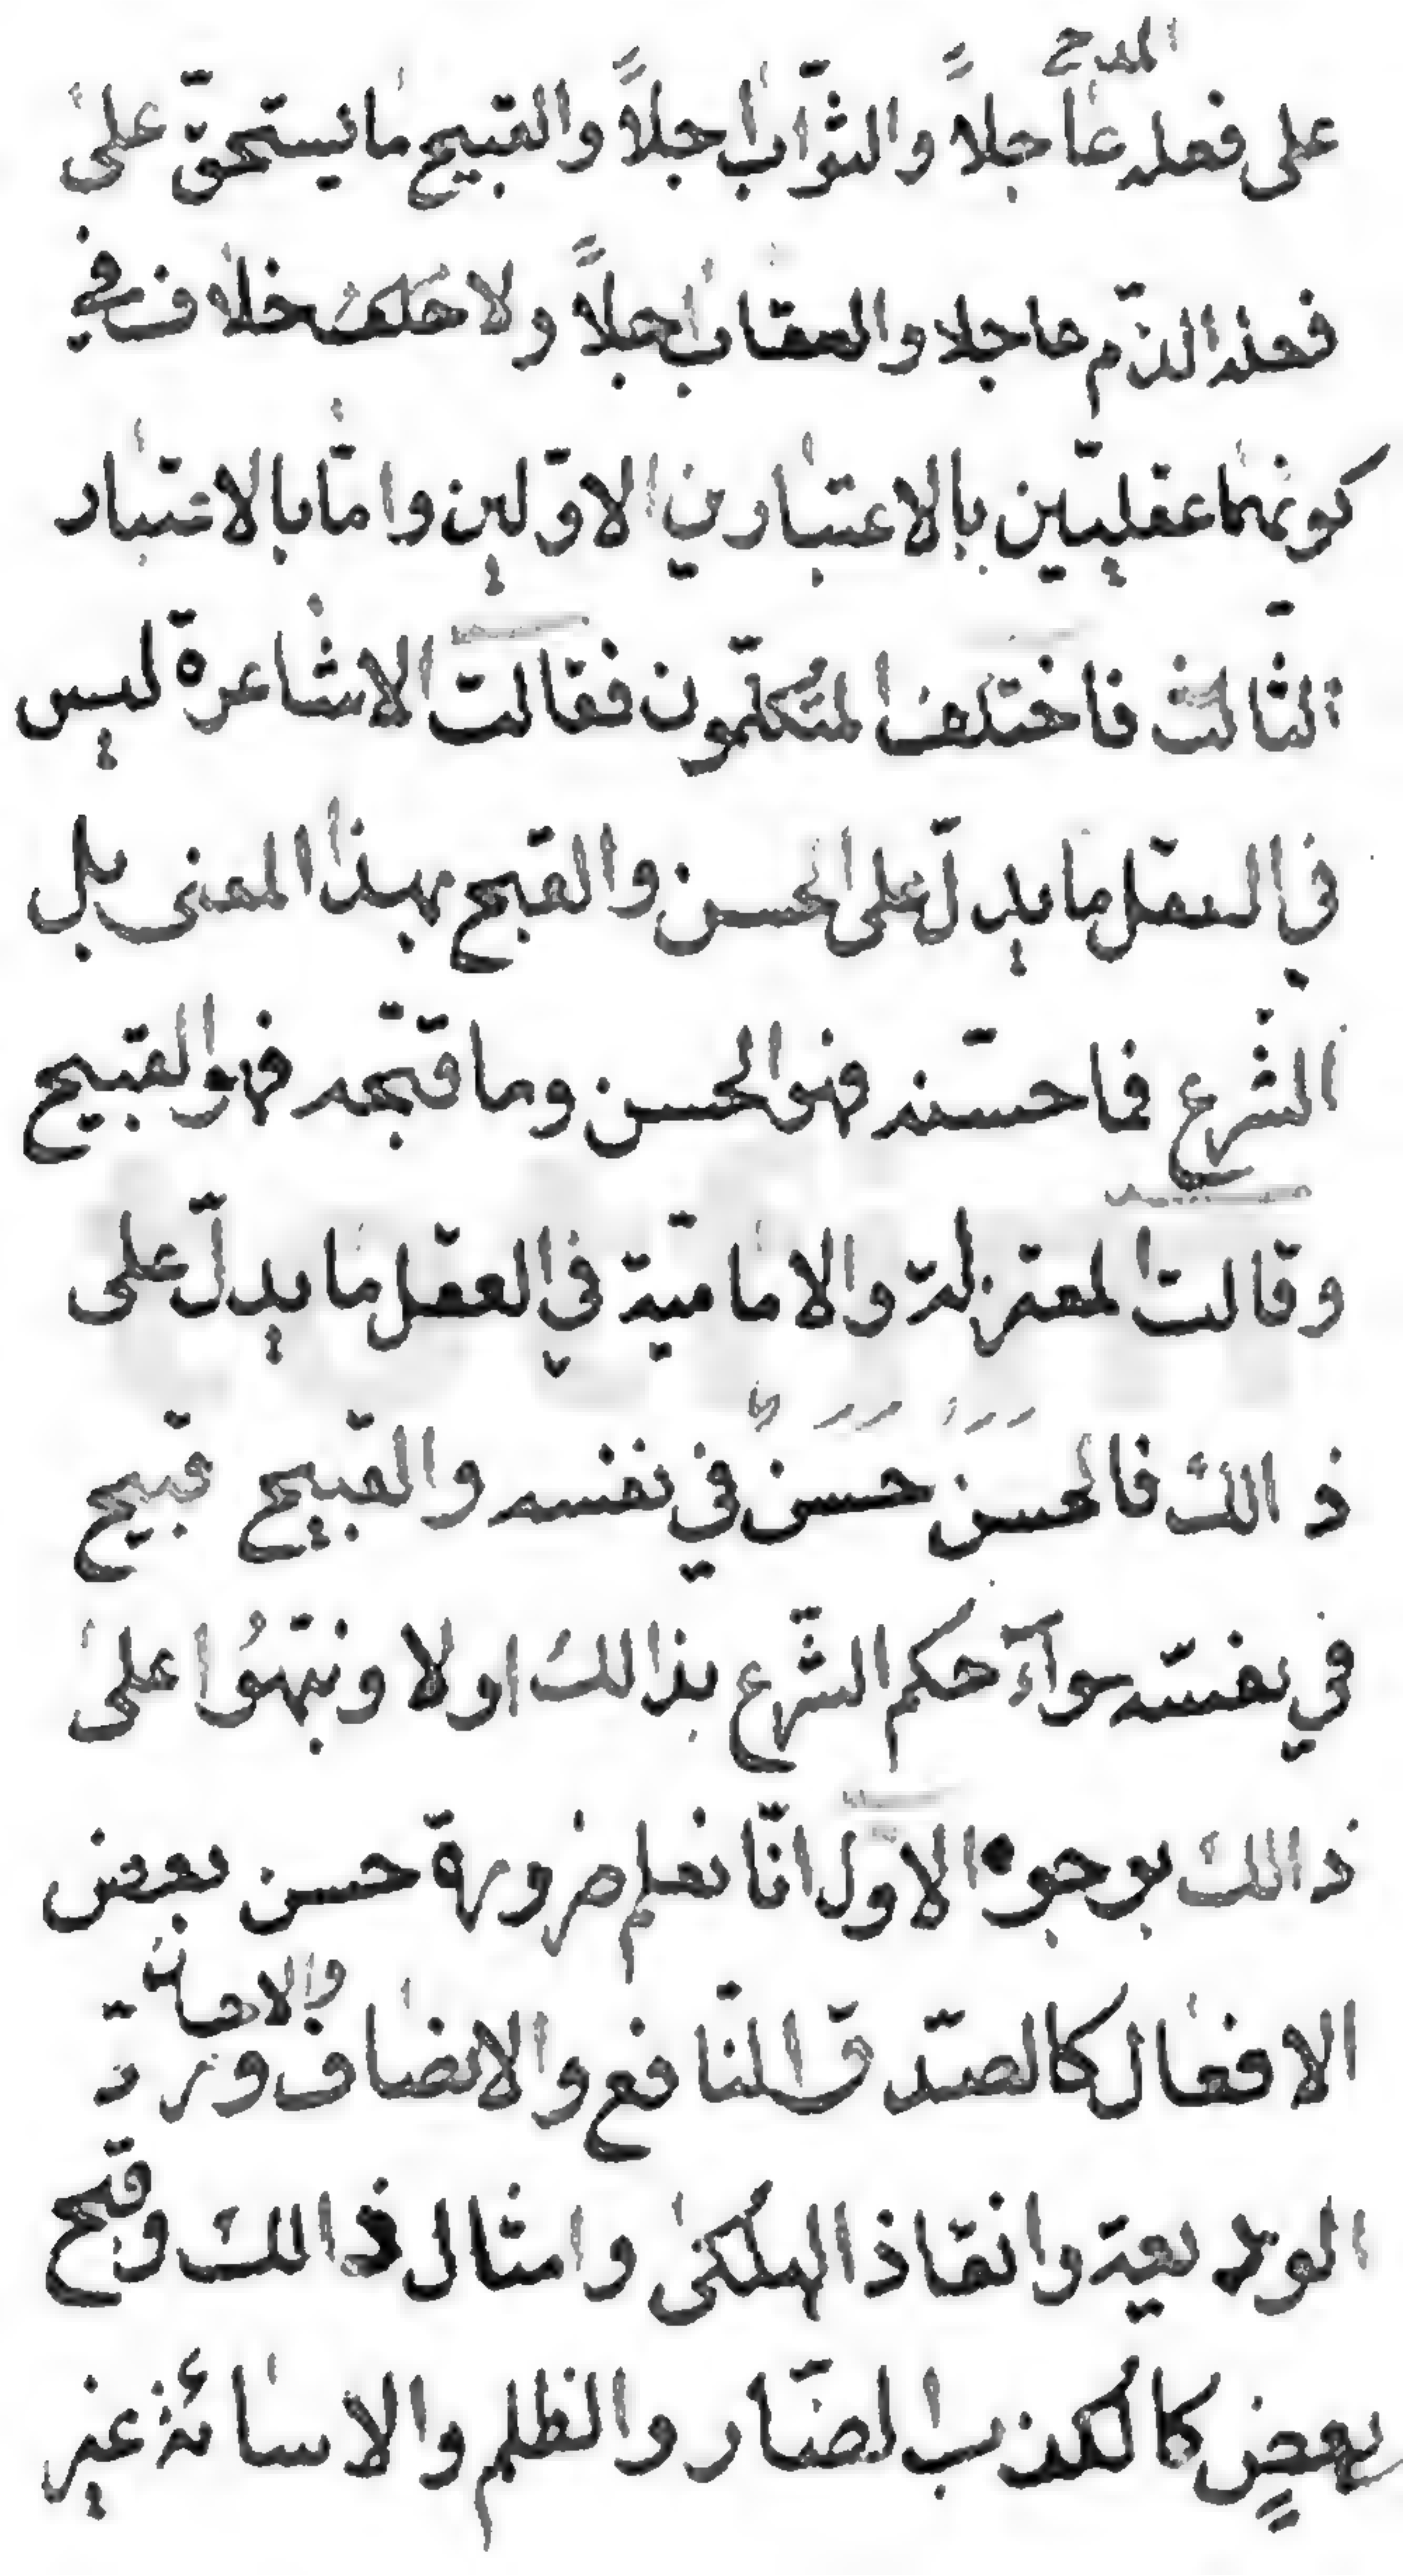 المدح
على فعله عاجلاً والثّواب اجلاً والقبيح ما يستحقّ على
فعله الذّم عاجلا والعقاب اجلاً ولا خلاف في
كونهما عقليّين بالاعتبارين الاوّلين وامّا بالاعتبار
الثّالث فاختلف المتكلّمون فقالت الاشاعرة ليس
في العقل ما يدلّ على الحسن والقبح بهذا المعنى بل
الشّرع فما حسّنه فهو الحسن وما قبّحه فهو القبيح
وقالت المعتزلة والاماميّة في العقل ما يدلّ على
ذالك فالحسن حسن في نفسه والقبيح قبيح
في نفسه سوآء حكم الشّرع بذالك او لا ونبّهوا على
ذالك بوجوه الاوّل انّا نعلم ضرورة حسن بعض
والاحسان
الافعال كالصّدق النّافع والانصاف وردّ
الوديعة وانقاذ الهلكى وامثال ذالك وقبح
بعضٍ كالكذب الضّار والظلم والاسائة غير